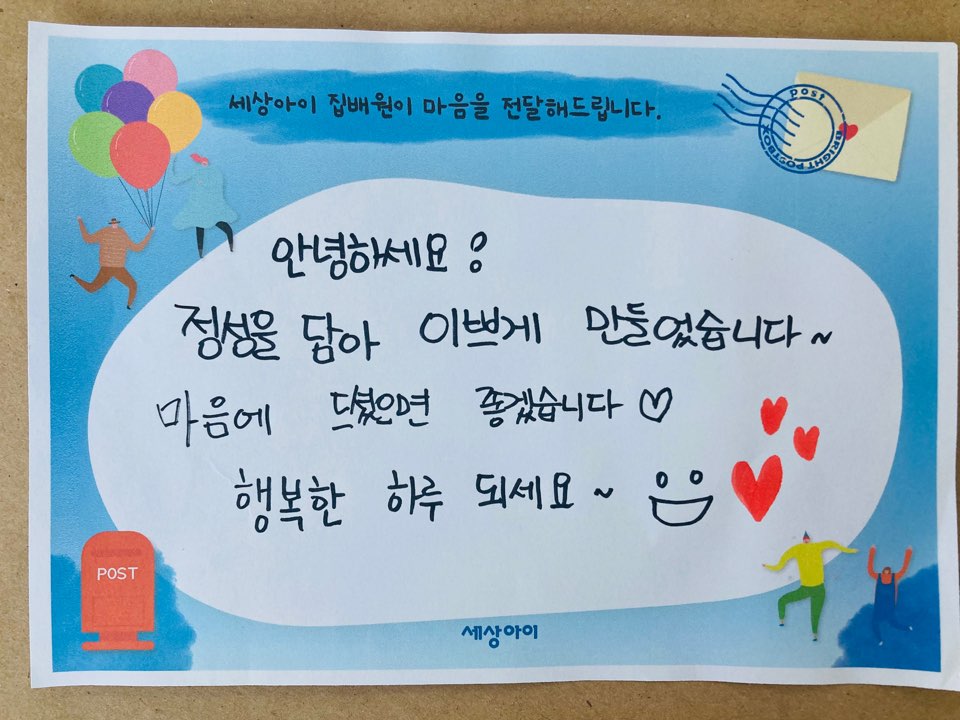 세상아이 집배원이 마음을 전달해드립니다.
post
BRIGHT POSTBOX
안녕하세요!
정성을 담아 이쁘게 만들었습니다~
마음에 드셨으면 좋겠습니다♡
행복한 하루 되세요~
POST
세상아이